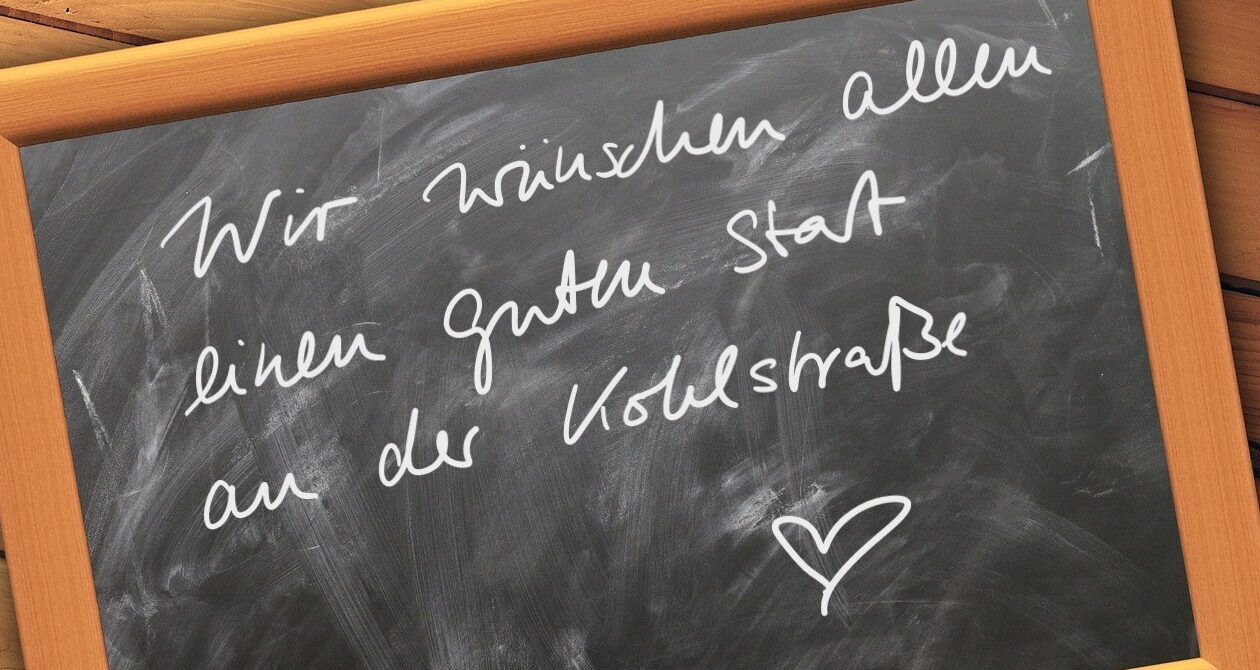 Wir wünschen allen
einen guten Start
an der Kohlstraße